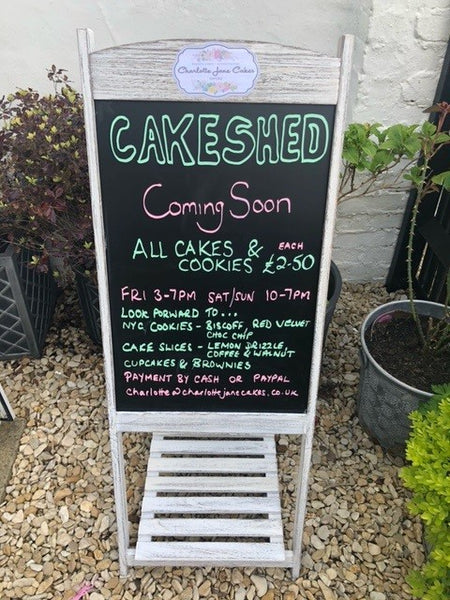 Charlotte Jane Cakes
CAKESHED
Coming Soon
ALL CAKES & EACH
COOKIES £2-50
FRI 3-7PM SAT/SUN 10-7PM
LOOK FORWARD TO...
NYC COOKIES - BISCOFF, RED VELVET
CHOC CHIP
CAKE SLICES - LEMON DRIZZLE,
COFFEE & WALNUT
CUPCAKES & BROWNIES
PAYMENT BY CASH OR PAYPAL
charlotte@charlottejanecakes.co.uk